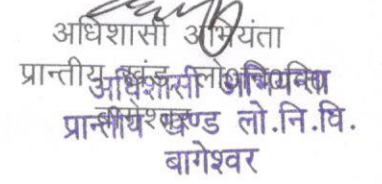 अधिशासी अभियंता
प्रान्तीय खंड, लो०नि०वि०
बागेश्वर
अधिशासी अभियन्ता
प्रान्तीय खण्ड लो.नि.वि.
बागेश्वर